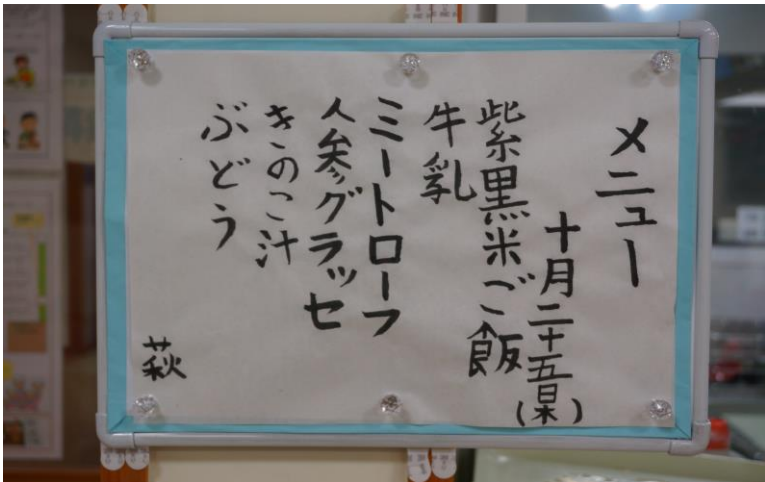 メニュー
十月二十五日(木)
紫黒米ご飯
牛乳
ミートローフ
人参グラッセ
きのこ汁
ぶどう
萩